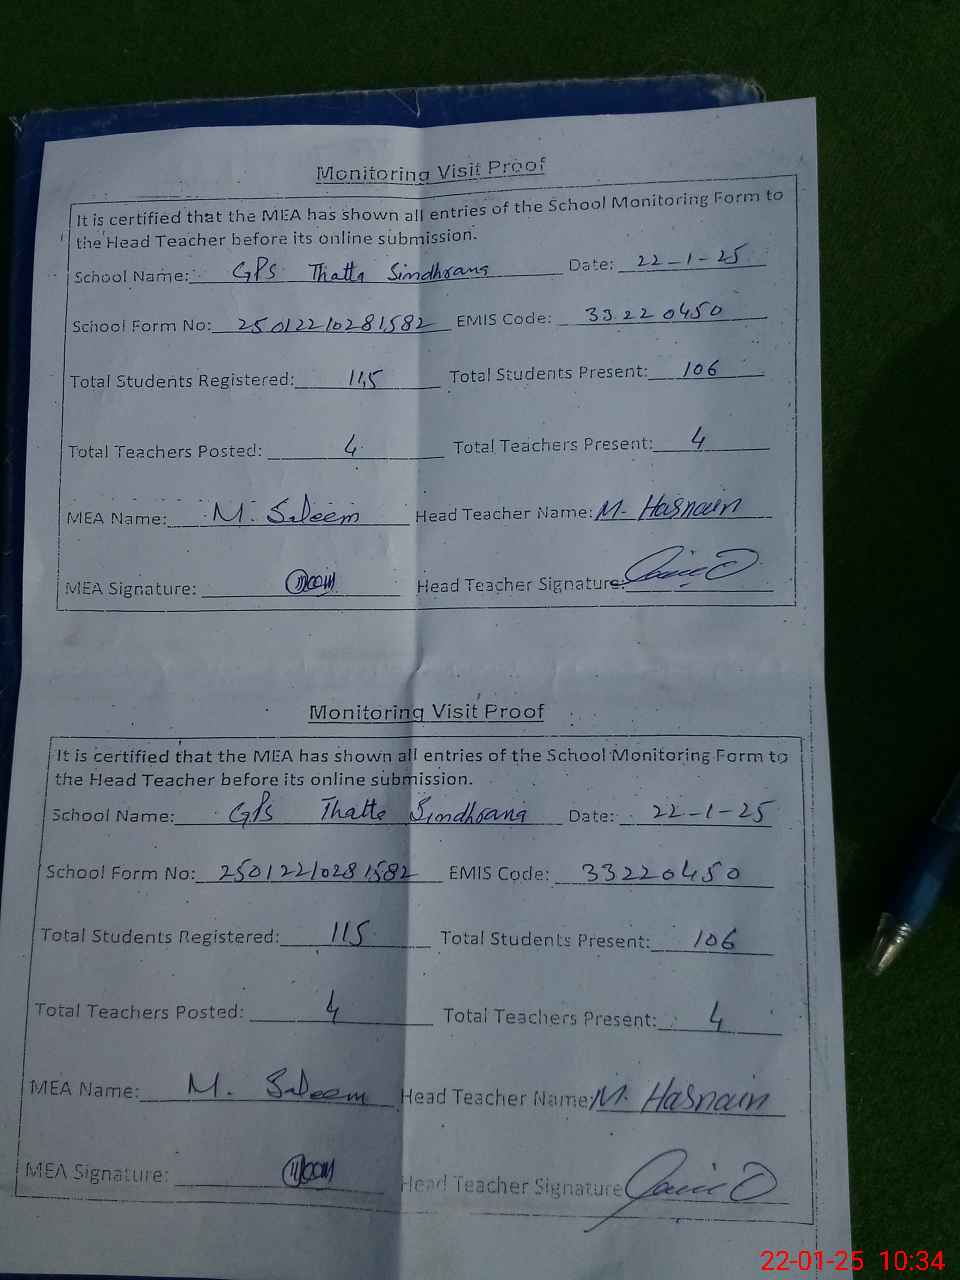 Monitoring Visit Proof
It is certified that the MEA has shown all entries of the School Monitoring Form to
the Head Teacher before its online submission.
School Name: GPS Thatta Sindhrana Date: 22-1-25
School Form No: 25012210281582 EMIS Code: 33220450
Total Students Registered: 115 Total Students Present: 106
Total Teachers Posted: 4 Total Teachers Present: 4
MEA Name: M. Saleem Head Teacher Name: M. Hasnain
MEA Signature: Head Teacher Signature:
Monitoring Visit Proof
It is certified that the MEA has shown all entries of the School Monitoring Form to
the Head Teacher before its online submission.
School Name: GPS Thatta Sindhrana Date: 22-1-25
School Form No: 25012210281582 EMIS Code: 33220450
Total Students Registered: 115 Total Students Present: 106
Total Teachers Posted: 4 Total Teachers Present: 4
MEA Name: M. Saleem Head Teacher Name: M. Hasnain
MEA Signature: Head Teacher Signature
22-01-25 10:34